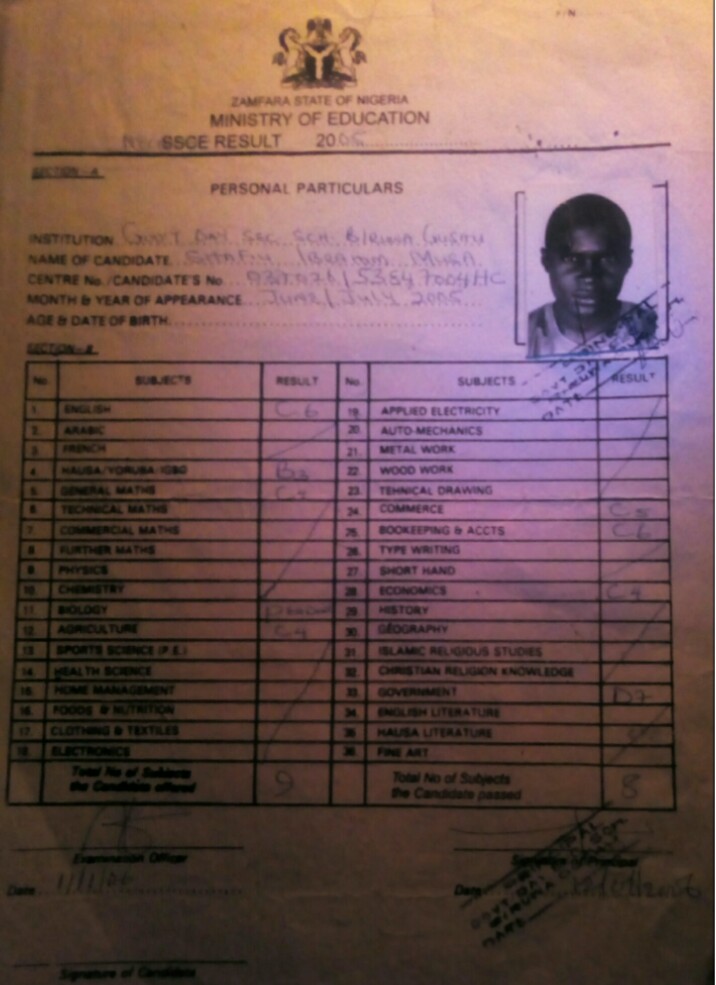 ZAMFARA STATE OF NIGERIA
MINISTRY OF EDUCATION
SSCE RESULT 2005
SECTION - A
PERSONAL PARTICULARS
INSTITUTION GOVT DAY SEC SCH BIRNIN GUSAU
NAME OF CANDIDATE IBRAHIM MUSA
CENTRE No./CANDIDATE'S No.
MONTH & YEAR OF APPEARANCE JUNE/JULY 2005
AGE & DATE OF BIRTH
SECTION - B
No. SUBJECTS RESULT No. SUBJECTS RESULT
1. ENGLISH C6 19. APPLIED ELECTRICITY
2. ARABIC 20. AUTO-MECHANICS
3. FRENCH 21. METAL WORK
4. HAUSA/YORUBA/IGBO B3 22. WOOD WORK
5. GENERAL MATHS C5 23. TEHNICAL DRAWING
6. TECHNICAL MATHS 24. COMMERCE C5
7. COMMERCIAL MATHS 25. BOOKEEPING & ACCTS C6
8. FURTHER MATHS 26. TYPE WRITING
9. PHYSICS 27. SHORT HAND
10. CHEMISTRY 28. ECONOMICS C4
11. BIOLOGY 29. HISTORY
12. AGRICULTURE C4 30. GEOGRAPHY
13. SPORTS SCIENCE (P.E.) 31. ISLAMIC RELIGIOUS STUDIES
14. HEALTH SCIENCE 32. CHRISTIAN RELIGION KNOWLEDGE
15. HOME MANAGEMENT 33. GOVERNMENT D7
16. FOODS & NUTRITION 34. ENGLISH LITERATURE
17. CLOTHING & TEXTILES 35. HAUSA LITERATURE
18. ELECTRONICS 36. FINE ART
Total No of Subjects the Candidate offered 9 Total No of Subjects the Candidate passed 8
Examination Officer Signature of Principal
Date Date
Signature of Candidate